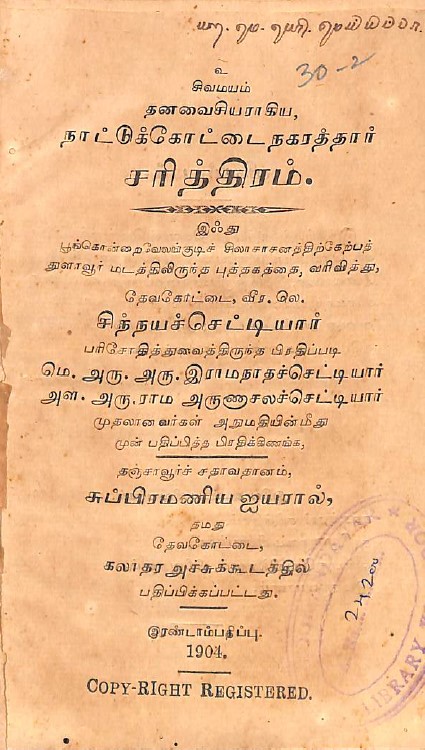 30-2
உ
சிவமயம்
தனவைசியராகிய,
நாட்டுக்கோட்டைநகரத்தார்
சரித்திரம்.
இஃது
பூங்கொன்றைவேலங்குடிச் சிலாசாசனத்திற்கேற்பத்
துளாவூர் மடத்திலிருந்த புத்தகத்தை, வரிவித்து,
தேவகோட்டை, வீர. லெ.
சிந்நயச்செட்டியார்
பரிசோதித்துவைத்திருந்த பிரதிப்படி
மெ. அரு. அரு. இராமநாதச்செட்டியார்
அள. அரு. ராம அருணாசலச்செட்டியார்
முதலானவர்கள் அநுமதியின்மீது
முன் பதிப்பித்த பிரதிக்கிணங்க,
தஞ்சாவூர்ச் சதாவதானம்,
சுப்பிரமணிய ஐயரால்,
தமது
தேவகோட்டை,
கலாதர அச்சுக்கூடத்தில்
பதிப்பிக்கப்பட்டது.
இரண்டாம்பதிப்பு.
1904.
COPY-RIGHT REGISTERED.
LIBRARY